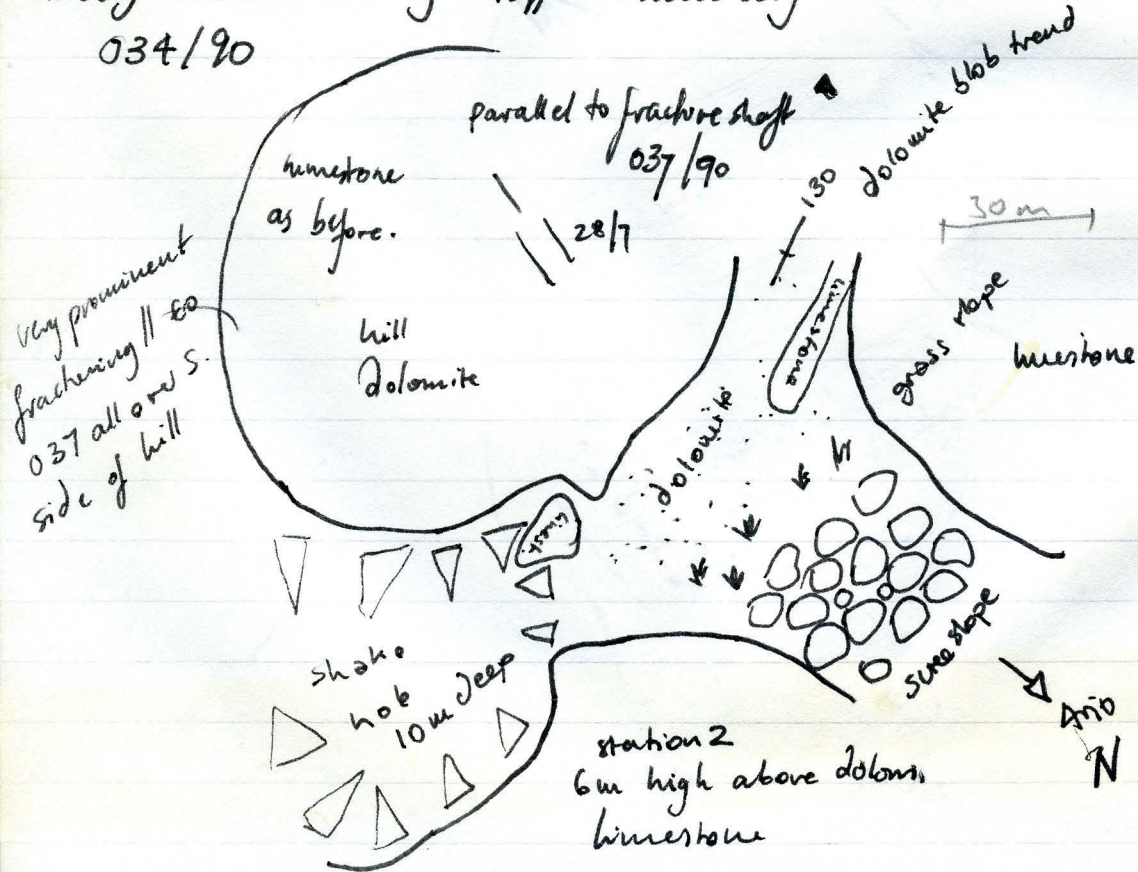 034/90
parallel to fracture shaft
037/90
130
dolomite blob trend
30m
limestone
as before.
28/7
very prominent
fracturing // to
037 all over S.
side of hill
hill
dolomite
limestone
grass slope
limestone
dolomite
limest
shake
hole
10m deep
scree slope
Ario
N
station 2
6m high above dolom,
limestone